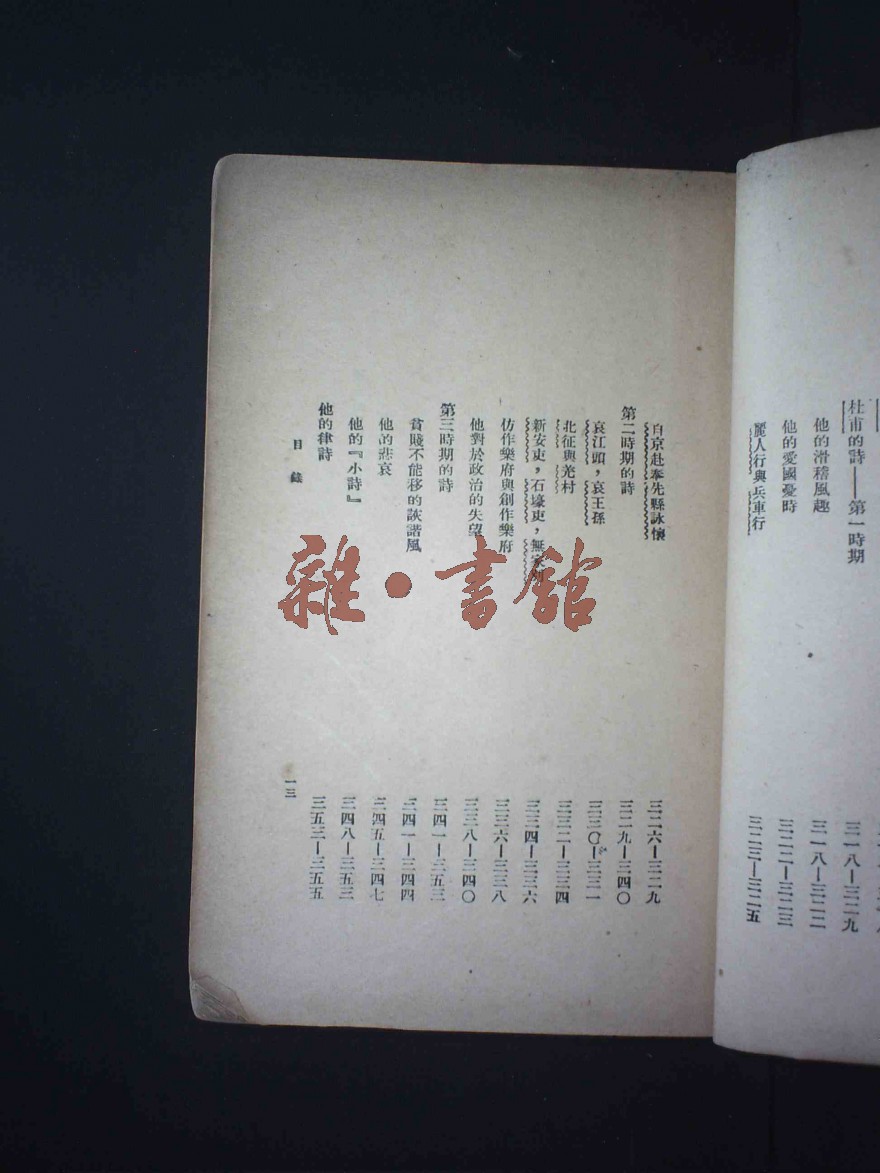 杜甫的詩——第一時期 三一八—三二九
他的滑稽風趣 三一八—三二二
他的愛國憂時 三二二—三二三
麗人行與兵車行 三二三—三二五
自京赴奉先縣詠懷 三二六—三二九
第二時期的詩 三二九—三四〇
哀江頭，哀王孫 三三〇—三三一
北征與羌村 三三二—三三四
新安吏，石壕吏，無家別 三三四—三三六
仿作樂府與創作樂府 三三六—三三八
他對於政治的失望 三三八—三四〇
第三時期的詩 三四一—三五三
貧賤不能移的詼諧風 三四一—三四四
他的悲哀 三四五—三四七
他的『小詩』 三四八—三五三
他的律詩 三五三—三五五
目錄
一三
雜·書館